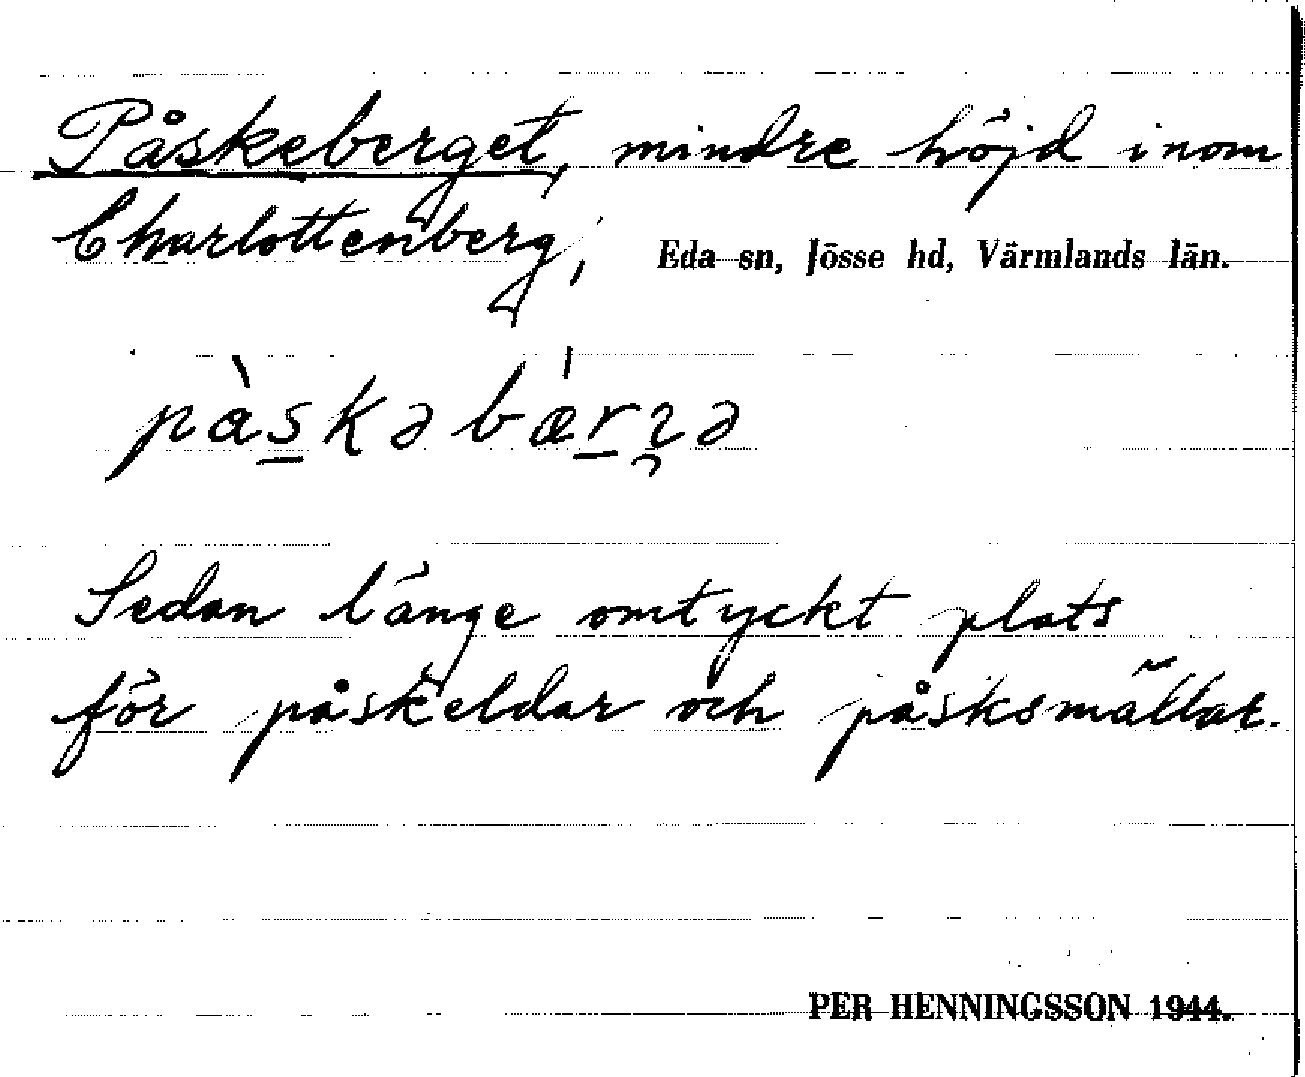 Påskeberget, mindre höjd inom
Charlottenberg, Eda sn, Jösse hd, Värmlands län.
pàskəbærꞔə
Sedan länge omtyckt plats
för påskeldar och påsksmällar.
PER HENNINGSSON 1944.